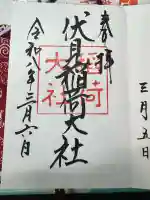 奉拝
伏見稲荷大社
稲荷
大社
令和八年三月六日
三月五日